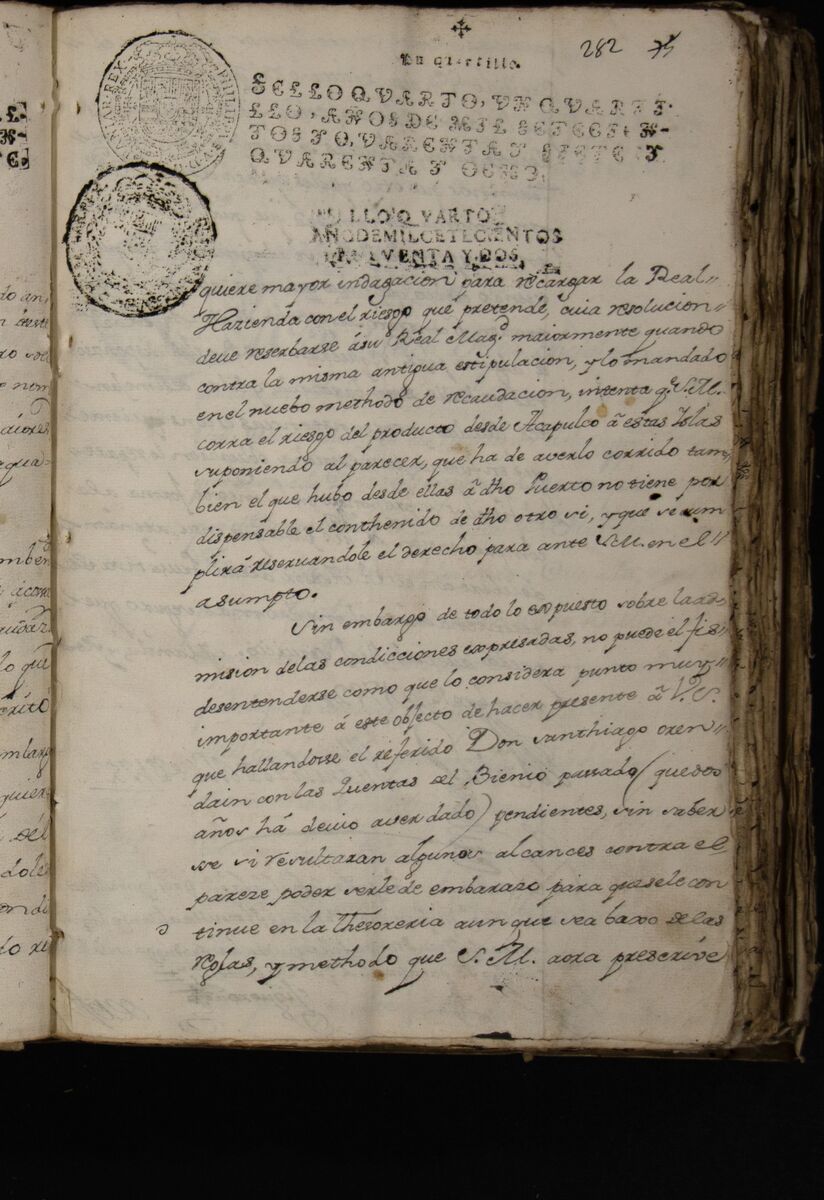 282
Un quartillo.
SELLO QVARTO, VN QVARTI-
LLO, AÑOS DE MIL SETECIEN-
TOS Y QVARENTA Y SIETE Y
QVARENTA Y OCHO.
PHILIP
REX
LLO QVARTO
AÑO DE MIL CETECIENTOS
Y DOS
quiere mayor indagacion para recargar la Real "
Hazienda con el riesgo que pretende, cuia resolucion "
deve reserbarse â su Real Magd. maiormente quando
contra la misma antigua estipulacion, y lo mandado
en el nuebo methodo de recaudacion, intenta q.e S.M.
corra el riesgo del producto desde Acapulco â estas Yslas
suponiendo al parecer, que ha de averlo corrido tam,
bien el que hubo desde ellas â dho Puerto no tiene por
dispensable el conthenido de dho otro si, y que se cum
plirâ reservandole el derecho para ante S.M. en el "
asumpto.
Sin embargo de todo lo expuesto sobre la ad "
mision de las condicciones expresadas, no puede el fis "
desentenderse como que lo considera punto muy "
importante â este objecto de hacer presente â V.S.
que hallandose el referido Don Santhiago oren "
dain con las Quentas del Bienio passado (que dos
años hâ devio aver dado) pendientes, sin saber
se si resultaran algunos alcances contra el
pareze poder serle de embarazo para que se le con
tinue en la thesoreria aunque sea baxo de las
reglas, y methodo que S.M. aora prescrive